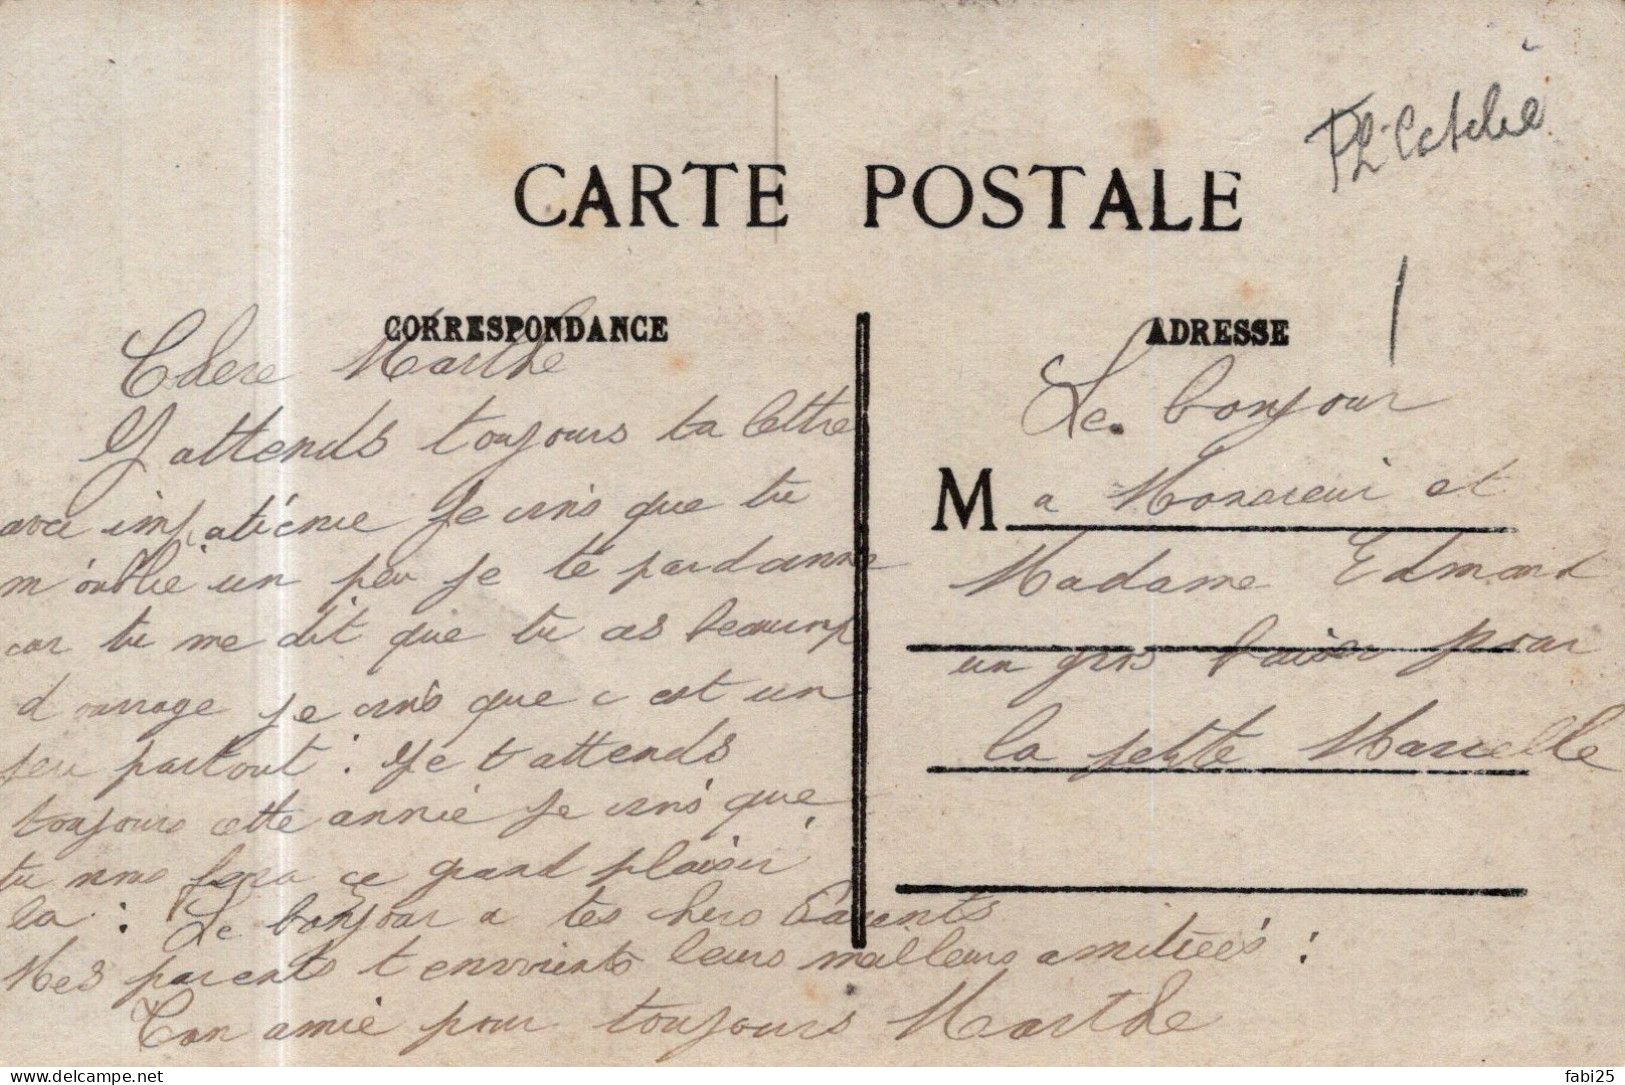 CARTE POSTALE
CORRESPONDANCE
Chere Marthe
J attends toujours ta lettre
avec impatience Je crois que tu
m'oublie un peu je te pardonne
car tu me dit que tu as beaucoup
d ouvrage je crois que c est un
peu partout. Je t attends
toujours cette année je crois que
tu nous fera ce grand plaisir
la : Le bonjour a tes chers Parents
Mes parents t envoients leurs meilleurs amitiées :
Ton amie pour toujours Marthe
ADRESSE
Le bonjour
M a Monsieur et
Madame Edmond
un gros baiser pour
la petite Marcelle
fabi25